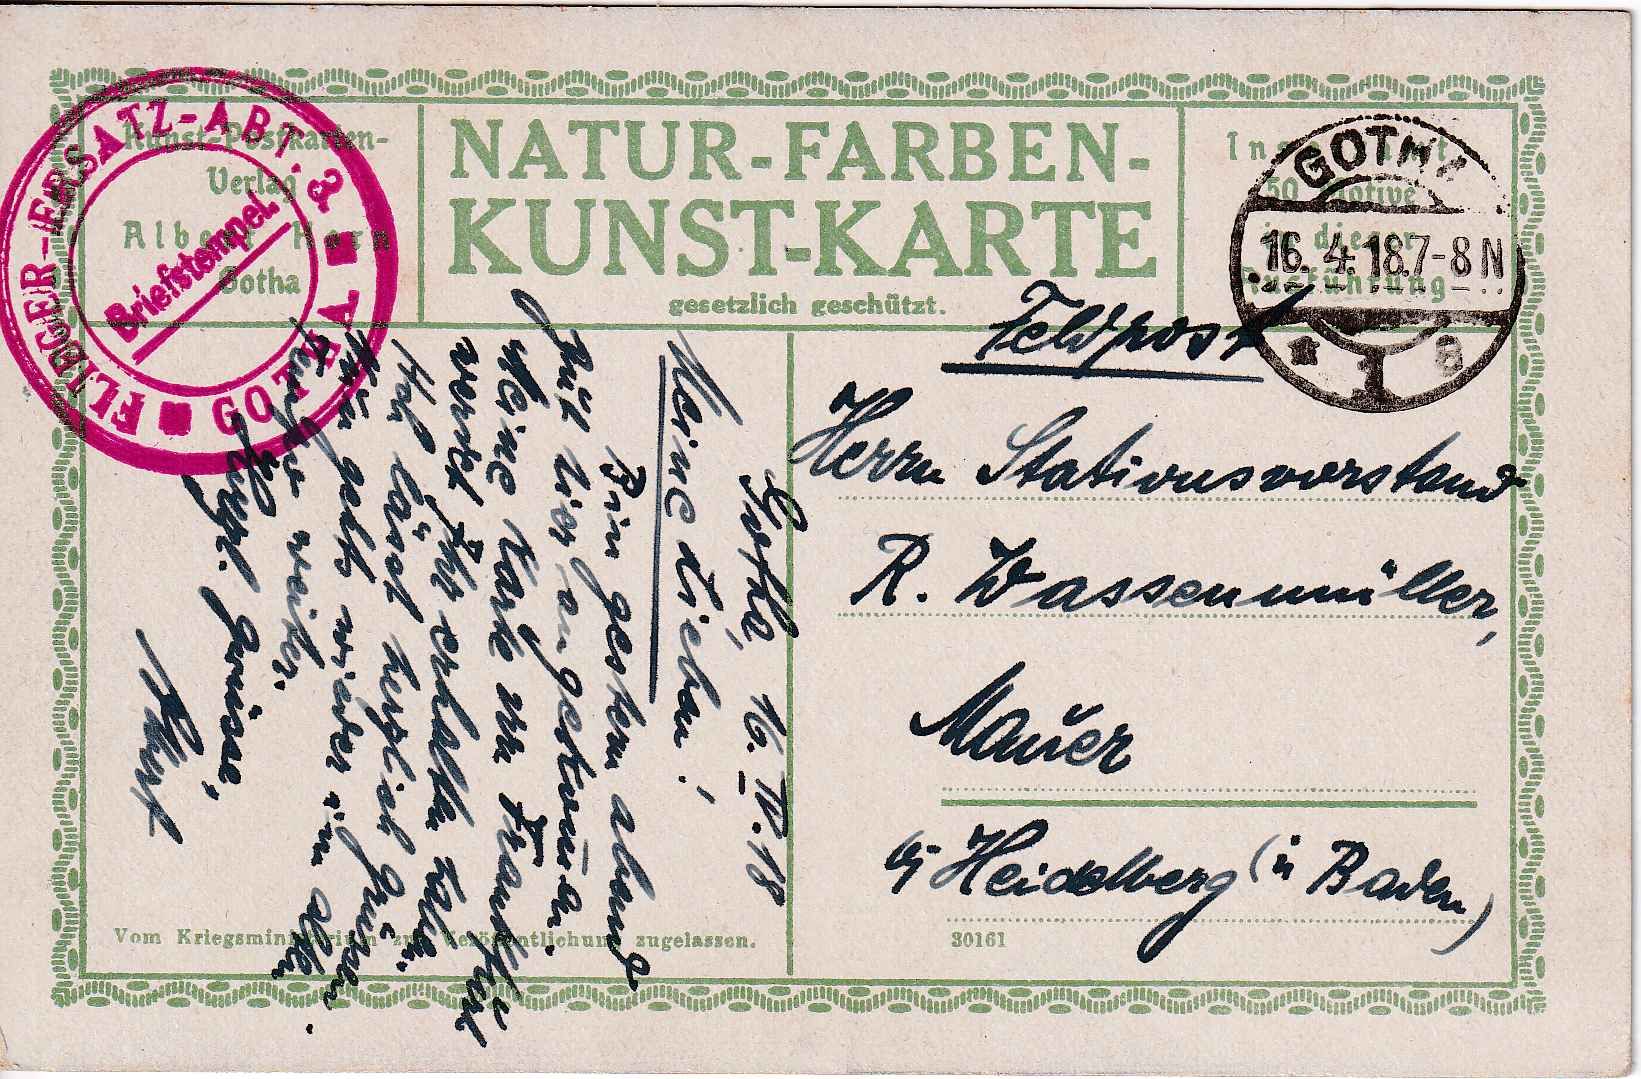 Kunst-Postkarten-
Verlag
Albert Horn
Gotha
NATUR-FARBEN-
KUNST-KARTE
gesetzlich geschützt.
50 Motive
in dieser
Ausführung
FLIEGER-ERSATZ-ABT. 3 GOTHA
Briefstempel.
GOTHA
16.4.18.7-8N
* 1 a
Feldpost
Herrn Stationsvorstand
R. Wassenmüller,
Mauer
bj Heidelberg (in Baden)
Gotha, 16. IV. 18
Meine Lieben!
Bin gestern abend
gut hier angekommen.
Meine Karte von Frankfurt
werdet Ihr erhalten haben.
Hoh lässt herzlich grüssen.
Hier gehts wieder im alten
weiter.
Herzl. Grüsse,
Albert
Vom Kriegsministerium zur Veröffentlichung zugelassen.
30161